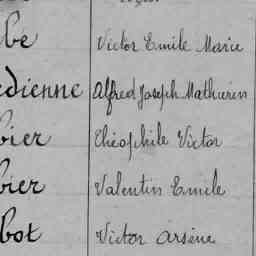 be Victor Emile Marie
dienne Alfred Joseph Mathurin
bier Théophile Victor
bier Valentin Emile
bot Victor Arsène